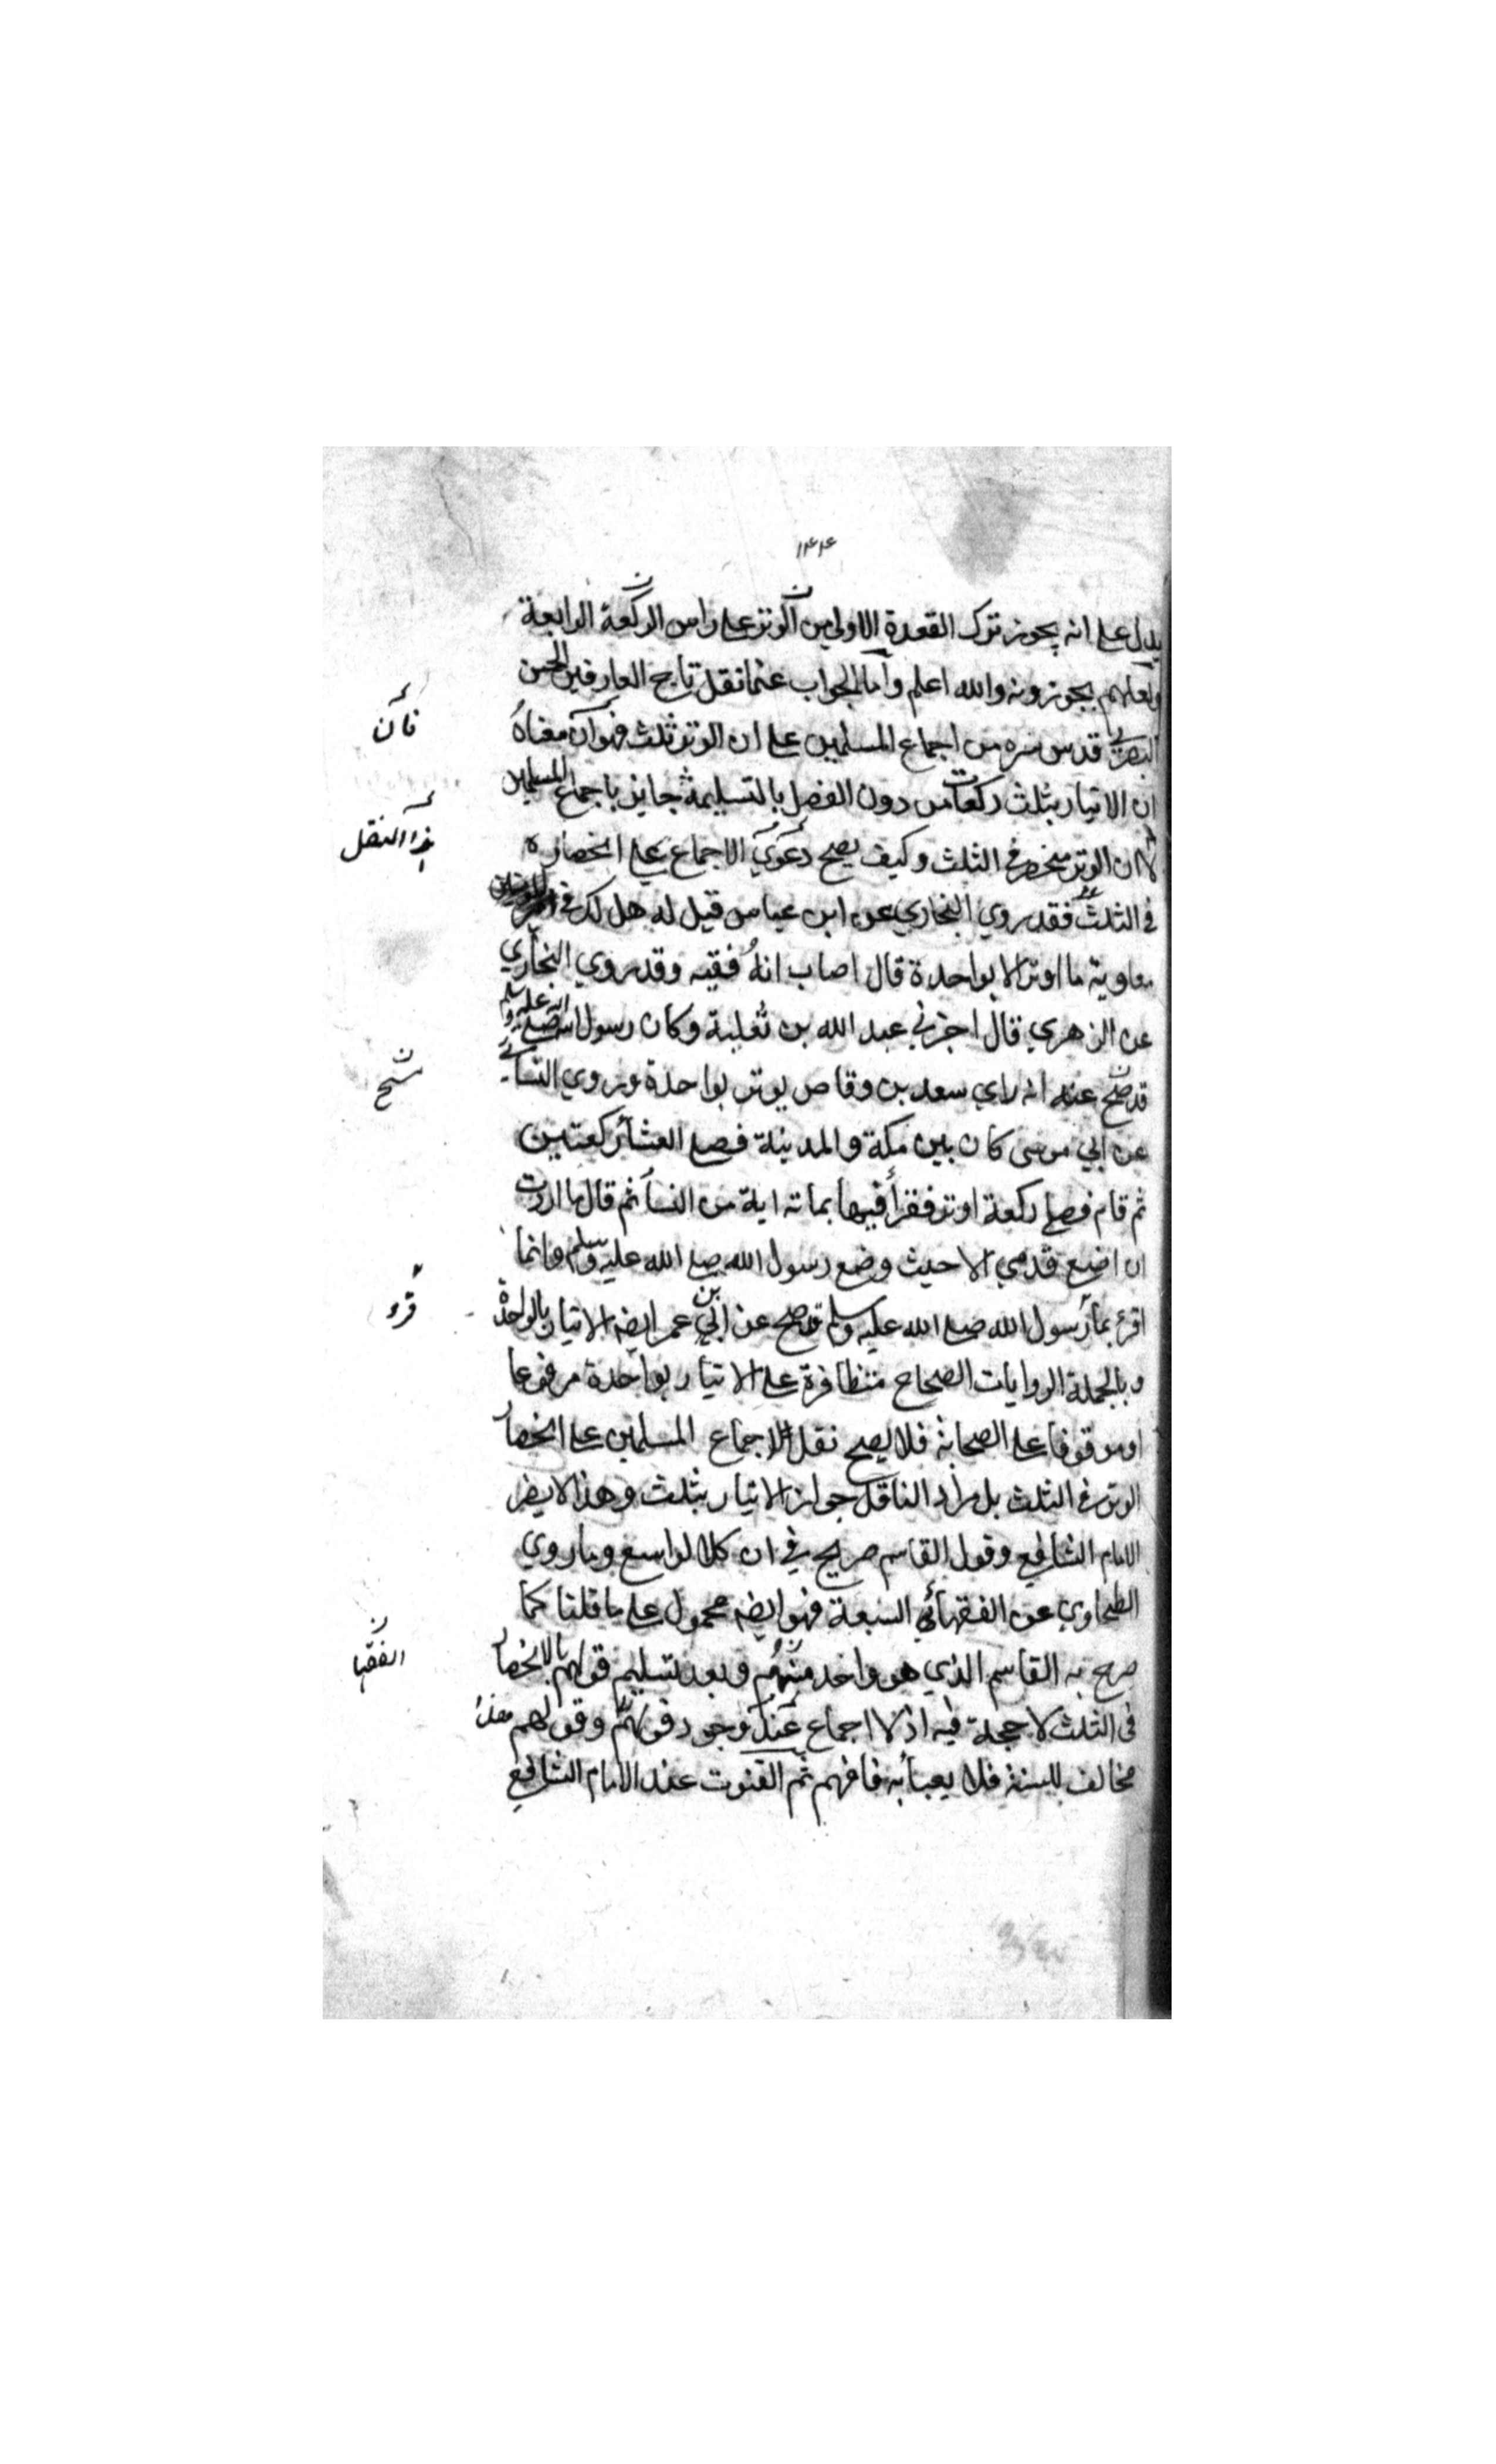 ١٤٤
يدل على انه يجوز ترك القعدة الاولى من الوتر على راس الركعة الرابعة
ولعلهم يجوزونه والله اعلم واما الجواب عنما نقل تاج العارفين الحسن
البصري قدس سره من اجماع المسلمين على ان الوتر ثلث فهو ان معناه
فان
ان الايتار بثلث ركعات من دون الفصل بالتسليمة جايز باجماع المسلمين
لا ان الوتر منحصر في الثلث وكيف يصح دعوي الاجماع على انحصاره
هذا النقل
في الثلث فقد روي البخاري عن ابن عباس قيل له هل لك في امير المؤمنين
معاوية ما اوتر الا بواحدة قال اصاب انه فقيه وقد روي البخاري
عن الزهري قال اخبرني عبد الله بن ثعلبة وكان رسول الله صلى الله عليه وسلم
قد مسح عنه انه راي سعد بن وقاص يوتر بواحدة وروي النسائي
مسح
عن ابي موسى كان بين مكة والمدينة فصلى العشأ ركعتين
ثم قام فصلى ركعة اوتر فقرأ فيها بماته اية من النسأ ثم قال ما اردت
ان اضع قدمي الا حيث وضع رسول الله صلى الله عليه وسلم وانما
اقرء بما رسول الله صلى الله عليه وسلم قد صح عن ابن عمر ايضه الايتار بالواحدة
قرء
وبالجملة الروايات الصحاح متظافرة على الايتار بواحدة مرفوعا
او موقوفا على الصحابة فلا يصح نقل الاجماع المسلمين على انحصار
الوتر في الثلث بل مراد الناقل جواز الايتار بثلث وهذا لا يضر
الامام الشافعي وقول القاسم صريح في ان كلا لواسع وما روي
الطحاوي عن الفقهائي السبعة فهو ايضه محمول على ما قلنا كما
صرح به القاسم الذي هو واحد منهم وبعد تسليم قولهم بالانحصار
الفقها
في الثلث لا حجة فيه اذ لا اجماع عند وجود قولهم وقولهم هذا
مخالف للسنة فلا يعبأ به فافهم ثم القنوت عند الامام الشافعي